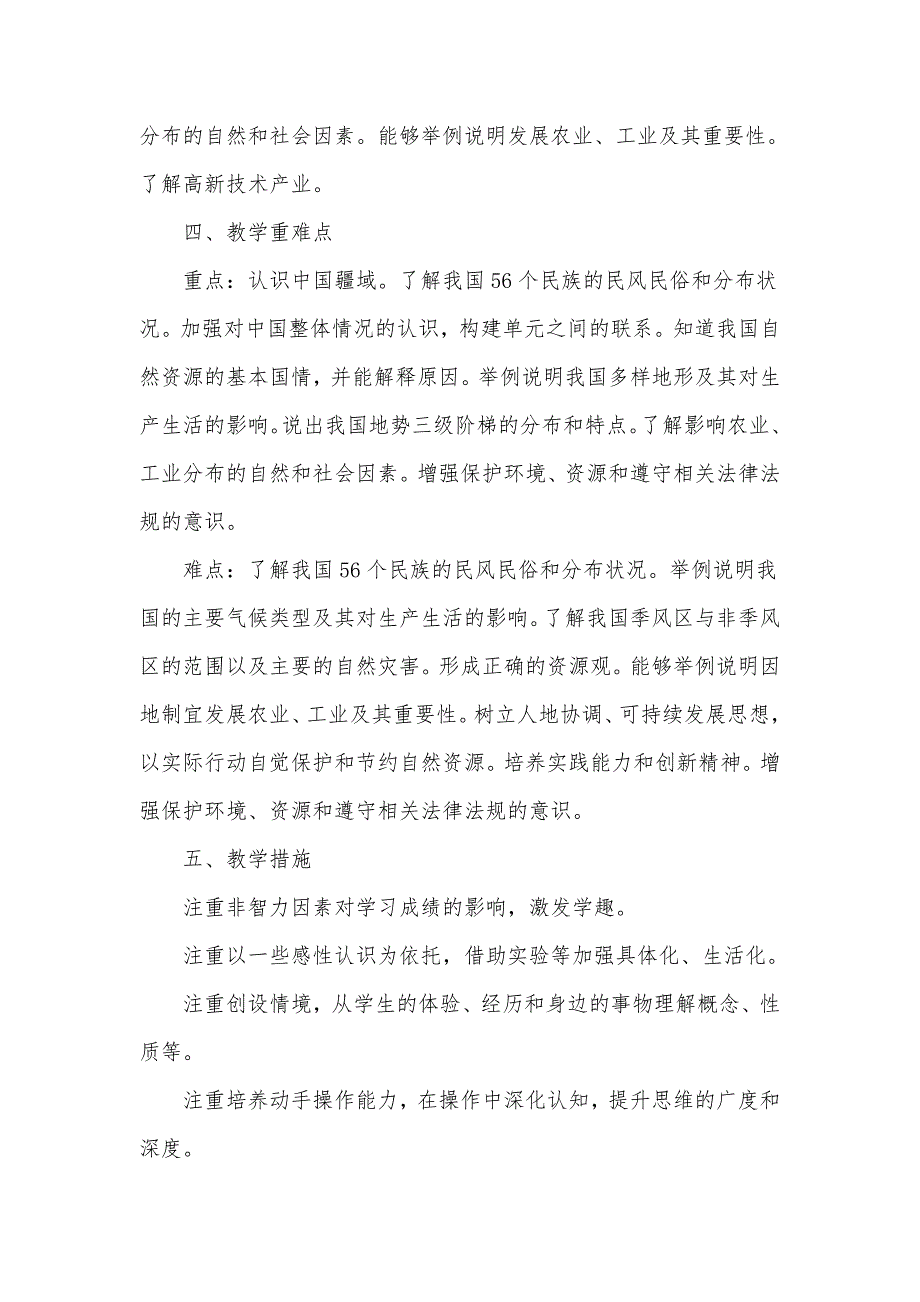 分布的自然和社会因素。能够举例说明发展农业、工业及其重要性。
了解高新技术产业。
四、教学重难点
重点：认识中国疆域。了解我国 56 个民族的民风民俗和分布状
况。加强对中国整体情况的认识，构建单元之间的联系。知道我国自
然资源的基本国情，并能解释原因。举例说明我国多样地形及其对生
产生活的影响。说出我国地势三级阶梯的分布和特点。了解影响农业、
工业分布的自然和社会因素。增强保护环境、资源和遵守相关法律法
规的意识。
难点：了解我国 56 个民族的民风民俗和分布状况。举例说明我
国的主要气候类型及其对生产生活的影响。了解我国季风区与非季风
区的范围以及主要的自然灾害。形成正确的资源观。能够举例说明因
地制宜发展农业、工业及其重要性。树立人地协调、可持续发展思想，
以实际行动自觉保护和节约自然资源。培养实践能力和创新精神。增
强保护环境、资源和遵守相关法律法规的意识。
五、教学措施
注重非智力因素对学习成绩的影响，激发学趣。
注重以一些感性认识为依托，借助实验等加强具体化、生活化。
注重创设情境，从学生的体验、经历和身边的事物理解概念、性
质等。
注重培养动手操作能力，在操作中深化认知，提升思维的广度和
深度。